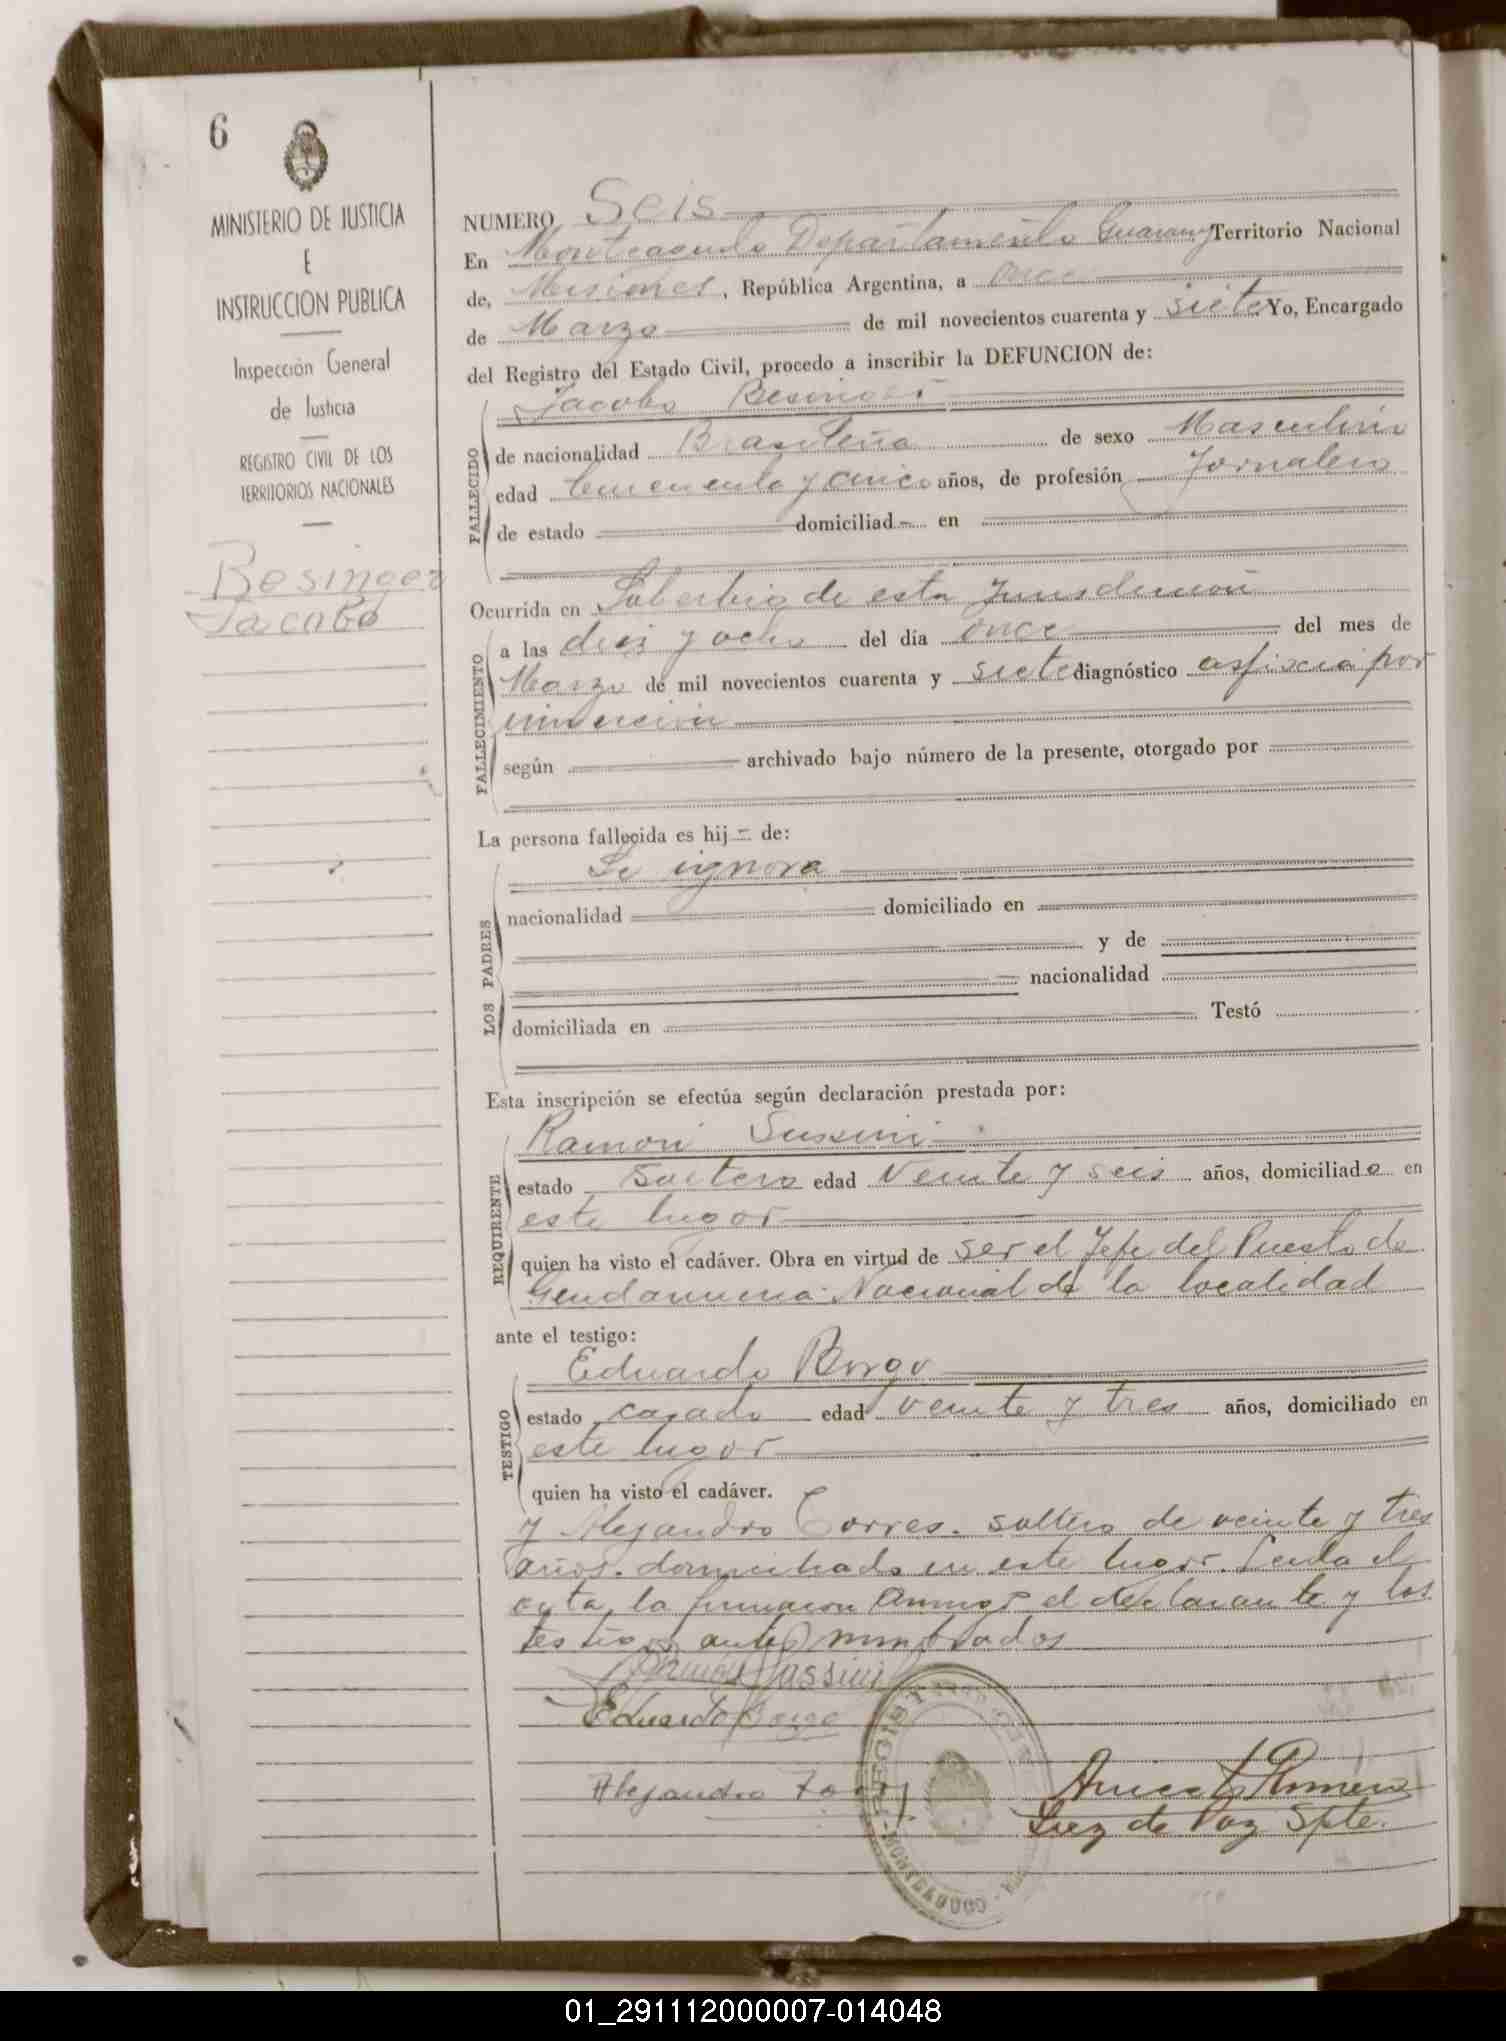 6
MINISTERIO DE JUSTICIA
E
INSTRUCCION PUBLICA
Inspección General
de Justicia
REGISTRO CIVIL DE LOS
TERRITORIOS NACIONALES
Besinger
Jacobo
NUMERO Seis
En Monteagudo Departamento Guarany Territorio Nacional
de, Misiones, República Argentina, a once
de Marzo de mil novecientos cuarenta y siete Yo, Encargado
del Registro del Estado Civil, procedo a inscribir la DEFUNCION de:
FALLECIDO
Jacobo
de nacionalidad Brasileña de sexo Masculino
edad cincuenta y cinco años, de profesión Jornalero
de estado domiciliad en
Ocurrida en Soberbio de esta Jurisdicción
FALLECIMIENTO
a las diez y ocho del día once del mes de
Marzo de mil novecientos cuarenta y siete diagnóstico asfixcia por
inmercion
según archivado bajo número de la presente, otorgado por
La persona fallecida es hij de:
LOS PADRES
Se ignora
nacionalidad domiciliado en
y de
nacionalidad
domiciliada en Testó
Esta inscripción se efectúa según declaración prestada por:
REQUIRENTE
Ramon Sussini
estado Soltero edad Veinte y seis años, domiciliado en
este lugar
quien ha visto el cadáver. Obra en virtud de ser el Jefe del Puesto de
Gendarmeria Nacional de la localidad
ante el testigo:
TESTIGO
Eduardo Borgo
estado casado edad veinte y tres años, domiciliado en
este lugar
quien ha visto el cadáver.
y Alejandro Torres. soltero de veinte y tres
años. domiciliado en este lugar. Leida el
acta, la firmaron conmigo el declarante y los
testigos antes nombrados
Ramón Sassini
Eduardo Borgo
Alejandro
REGISTRO CIVIL
MONTEAGUDO
Romero
Juez de Paz Splte.
01_291112000007-014048